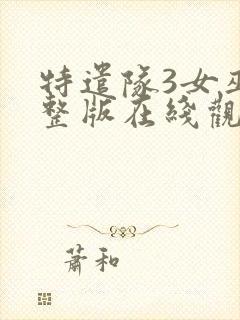 特遣隊3女巫
整版在綫觀
蕭和